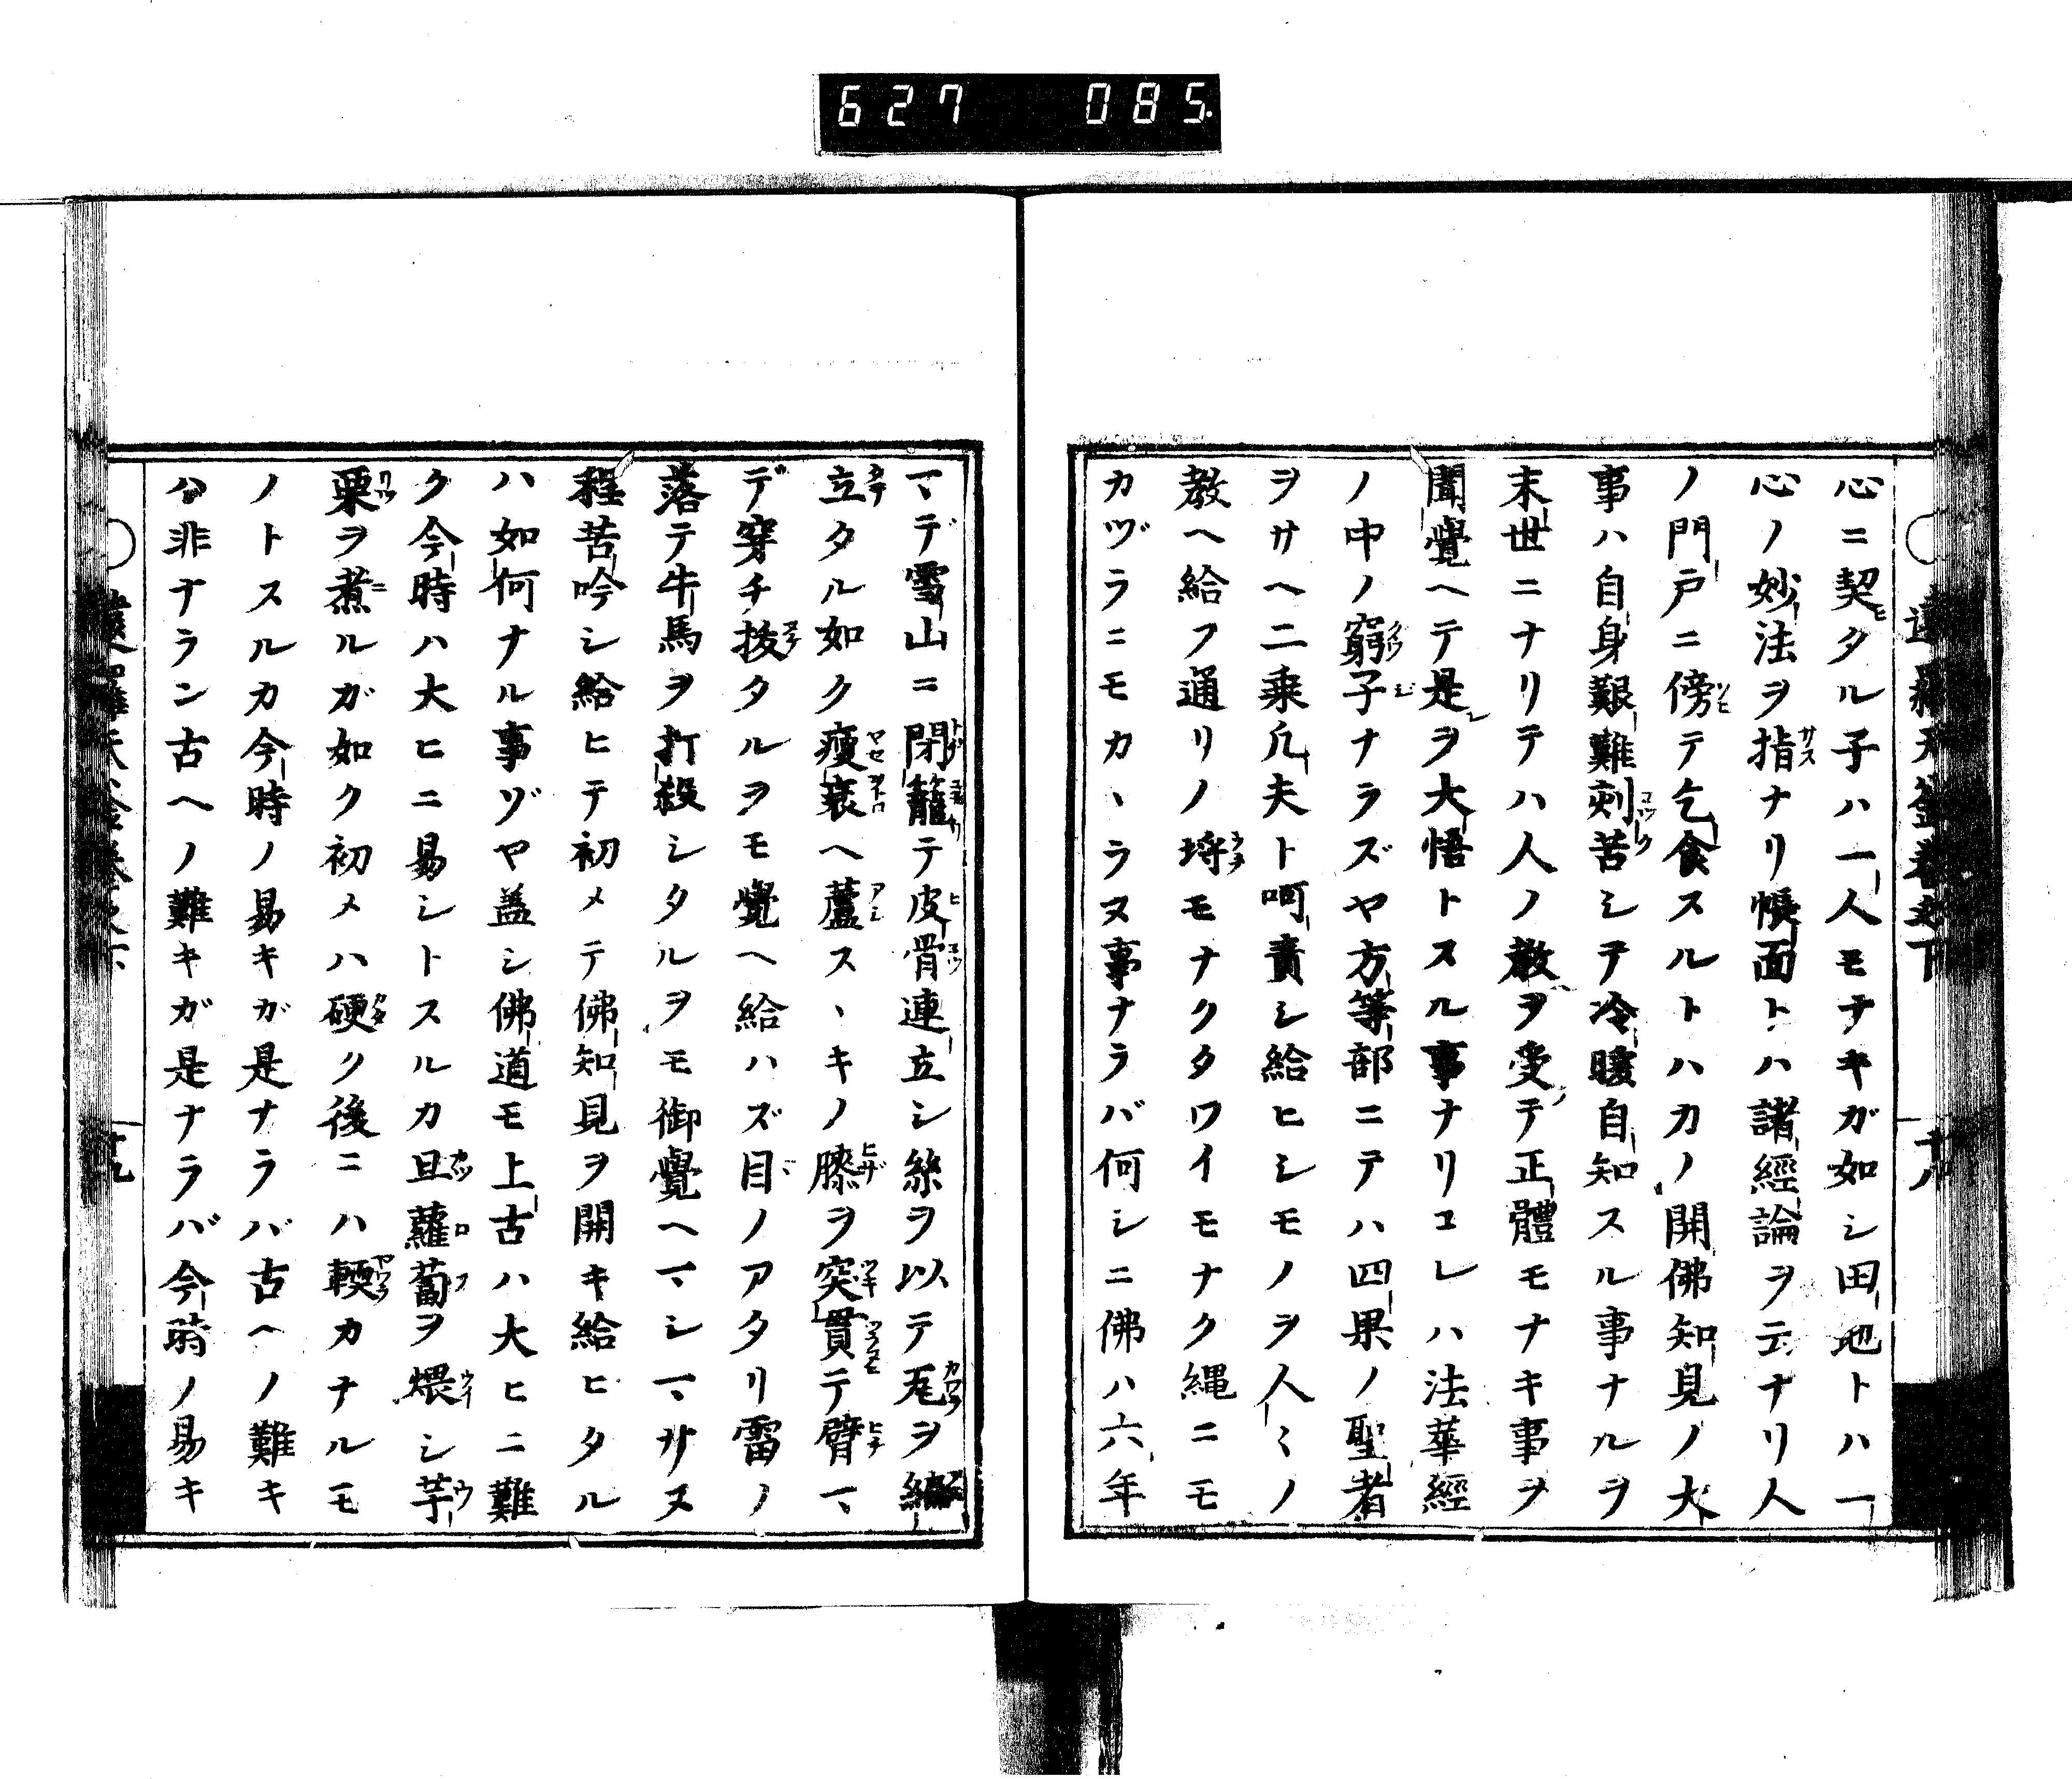 627 085
心ニ契タル子ハ一人モナキガ如シ田地トハ一
心ノ妙法ヲ指ナリ帳面トハ諸經論ヲ云ナリ人
ノ門戸ニ傍テ乞食スルトハカノ開佛知見ノ大
事ハ自身艱難刻苦シテ冷暖自知スル事ナルヲ
末世ニナリテハ人ノ教ヲ受テ正體モナキ事ヲ
聞覺ヘテ是ヲ大悟トスル事ナリコレハ法華經
ノ中ノ窮子ナラズヤ方等部ニテハ四果ノ聖者
ヲサヘ二乘凡夫ト呵責シ給ヒシモノヲ人〻ノ
教ヘ給フ通リノ埒モナクタワイモナク縄ニモ
カヅラニモカヽラヌ事ナラバ何シニ佛ハ六年
マデ雪山ニ閉籠テ皮骨連立シ絲ヲ以テ瓦ヲ編
立タル如ク瘦衰ヘ蘆スヽキノ膝ヲ突貫テ臂マ
デ穿チ拔タルヲモ覺ヘ給ハズ目ノアタリ雷ノ
落テ牛馬ヲ打殺シタルヲモ御覺ヘマシマサヌ
程苦吟シ給ヒテ初メテ佛知見ヲ開キ給ヒタル
ハ如何ナル事ゾヤ盖シ佛道モ上古ハ大ヒニ難
ク今時ハ大ヒニ易シトスルカ且蘿蔔ヲ煨シ芋
栗ヲ煮ルガ如ク初メハ硬ク後ニハ輭カナルモ
ノトスルカ今時ノ易キガ是ナラバ古ヘノ難キ
ハ非ナラン古ヘノ難キガ是ナラバ今時ノ易キ